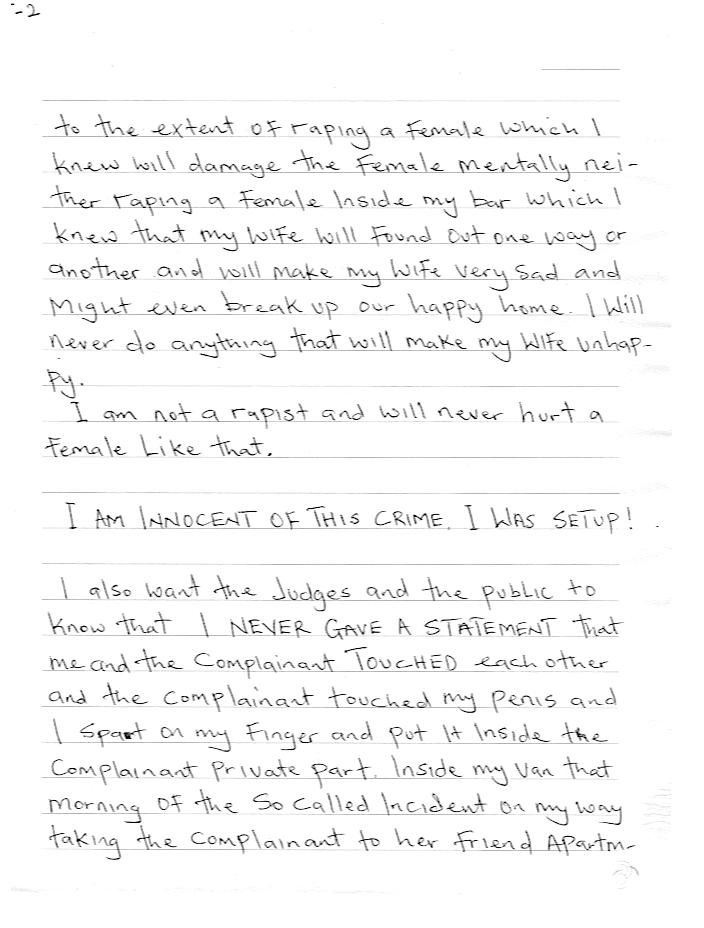 -2
to the extent of raping a Female which I
knew will damage the Female mentally nei-
ther raping a Female Inside my bar which I
knew that my Wife will Found Out one way or
another and will make my Wife very Sad and
Might even break up our happy home. I Will
never do anything that will make my Wife Unhap-
py.
I am not a rapist and will never hurt a
Female Like that.
I AM INNOCENT OF THIS CRIME. I WAS SETUP!
I also want the Judges and the public to
know that I NEVER GAVE A STATEMENT that
me and the Complainant TOUCHED each other
and the Complainant touched my penis and
I Spart on my Finger and put It Inside the
Complainant Private part. Inside my Van that
morning OF the So Called Incident on my way
taking the Complainant to her Friend Apartm-